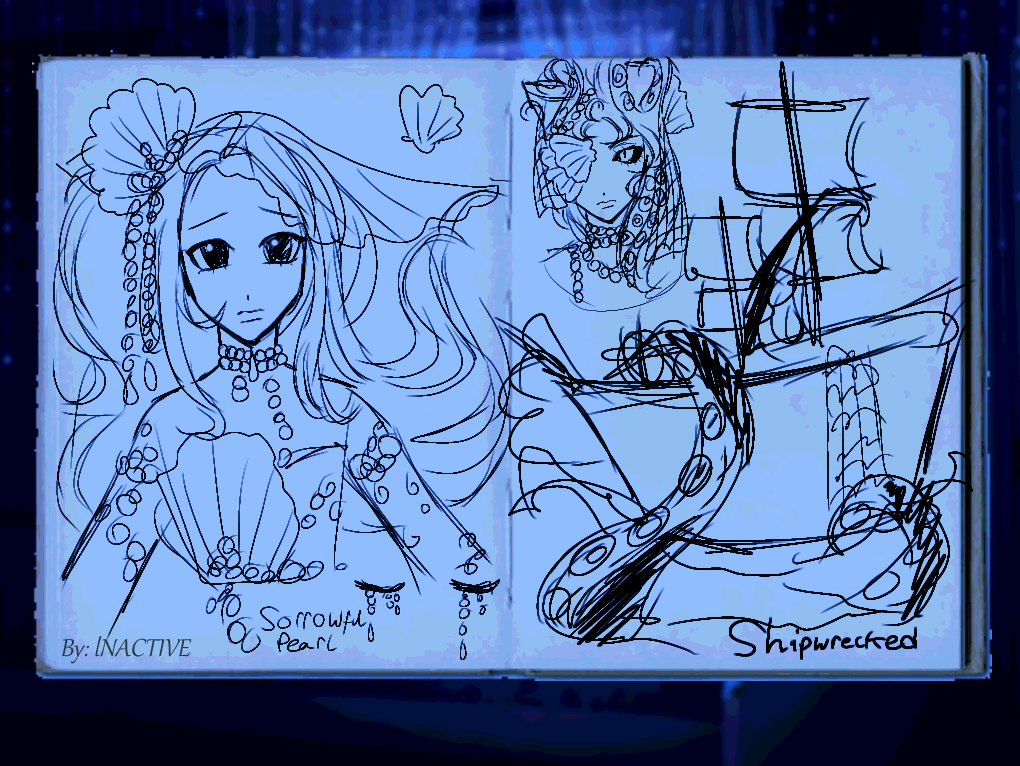 Sorrowful
Pearl
By: INACTIVE
Shipwrecked